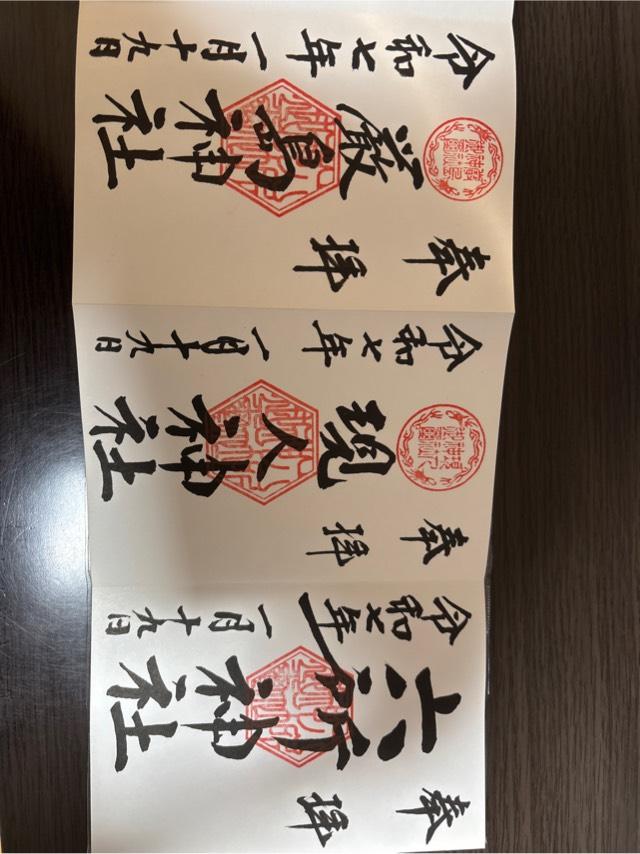 奉拝
六所神社
令和七年一月十九日
奉拝
現人神社
令和七年一月十九日
奉拝
厳島神社
令和七年一月十九日